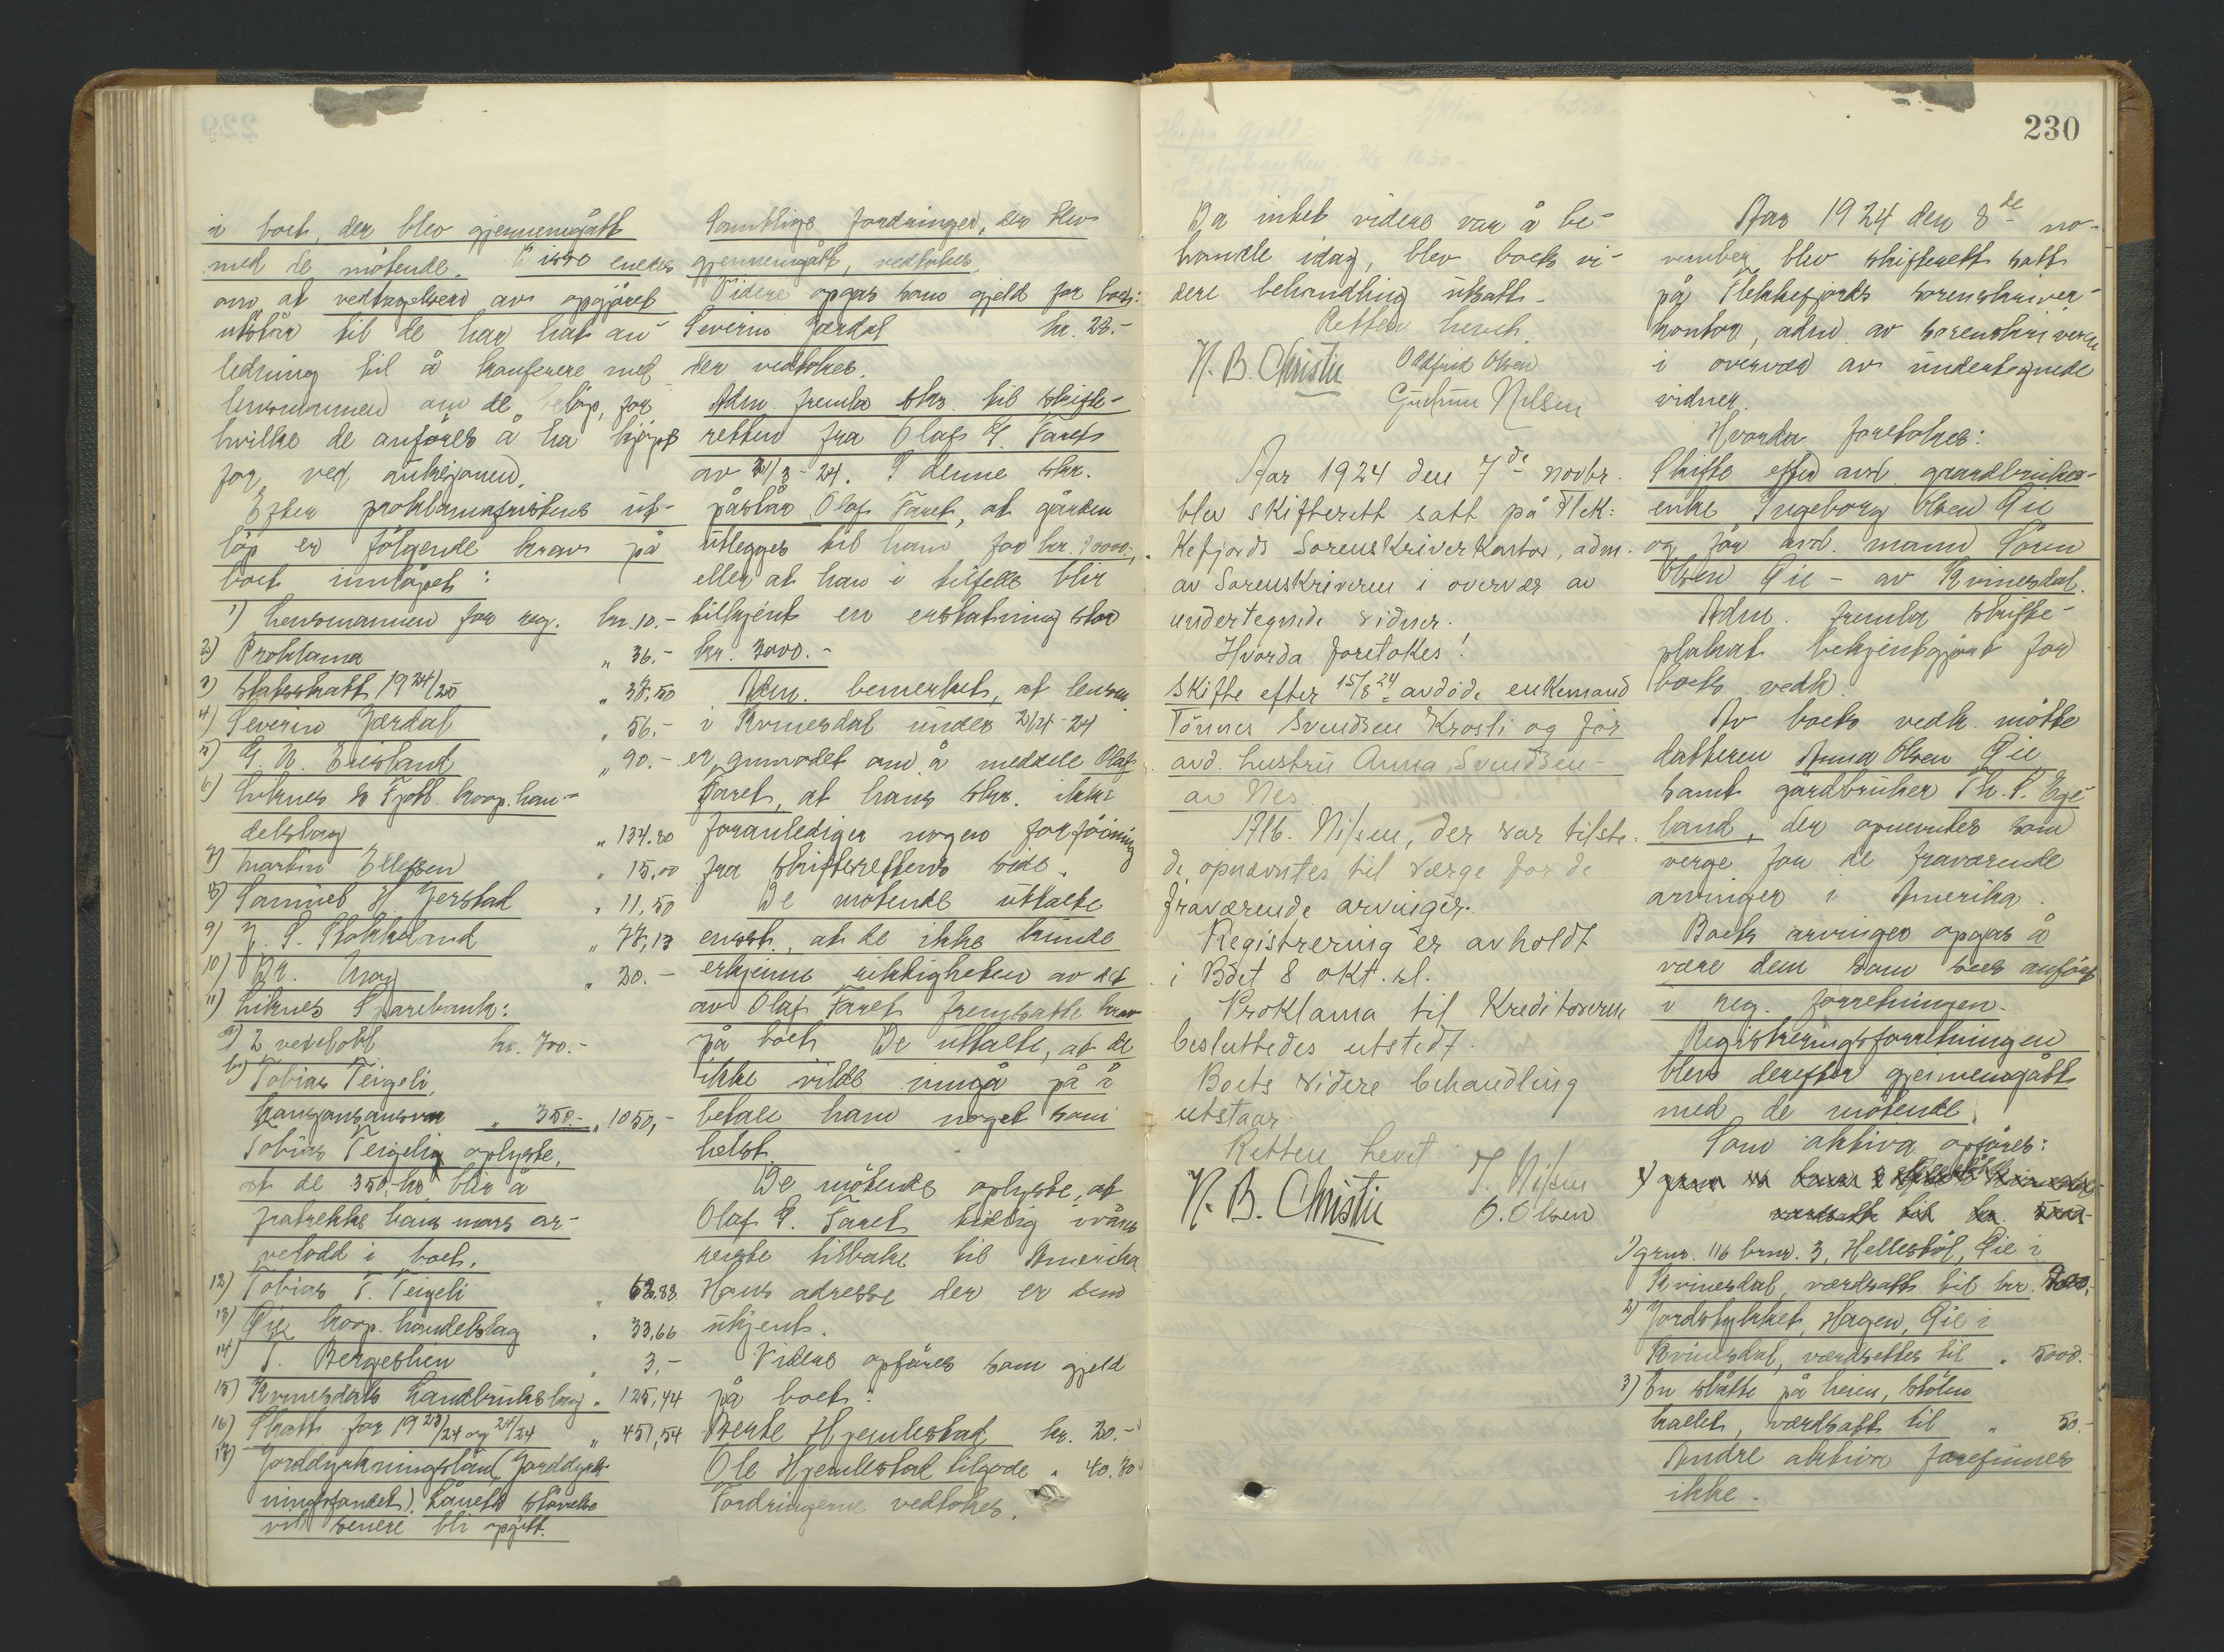 i boet, der blev gjennemgått
med de møtende. Disse enedes
om at vedtagelsen av opgjøret
utstår til de har hat an-
ledning til å konferere med
lensmannen om de beløp, for
hvilke de anføres å ha kjøpt
for ved auksjonen.
Efter proklamafristens ut-
løp er følgende krav på
boet innløpet:
1) Lensmannen for reg. kr. 10.-
2) Proklama " 36.-
3) Statsskatt 1924/25 " 38,50
4) Severin Jerdal " 56.-
5) " 90.-
6) Liknes & Fjotl. koop. han-
delslag " 134.80
7) Martin Ellefsen " 15,00
8) Samuel H. Jerstad " 11,50
9) J. S. Stokkeland " 77,13
10) Dr. " 30.-
11) Liknes Sparebank:
a) 2 veksel kr. 700.-
b) Tobias Teigeli,
" 350.- " 1050,-
Tobias Teigeli oplyste,
at de 350 kr. blir å
fratrekke hans mors ar-
velodd i boet.
12) Tobias T. Teigeli " 62.88
13) Gie koop. handelslag " 33,66
14) T. Bergeslien " 3,-
15) Kvinesdals Landbrukslag " 125,44
16) Skatt for 1923/24 og 24/24 " 451,54
17) Jorddyrkningslån (Jorddyrk-
ningsfondet). Lånets størrelse
vil senere bli opgitt.
Samtlige fordringer, der blev
gjennemgått, vedtokes.
Videre opgas som gjeld for boet:
Severin Jerdal kr. 28.-
der vedtokes.
Adm. fremla skr. til skifte-
retten fra Olaf G. Faret
av 31/3-24. I denne skr.
påstår Olaf Faret, at gården
utlegges til ham for kr. 9000.-,
eller at han i tilfelle blir
tilkjent en erstatning stor
kr. 3000.-
Adm. bemerket, at lensm.
i Kvinesdal under 2/4-24
er anmodet om å meddele Olaf
Faret, at hans skr. ikke
foranlediger nogen forføining
fra skifterettens side.
De møtende uttalte
enst., at de ikke kunde
erkjenne riktigheten av det
av Olaf Faret fremsatte krav
på boet. De uttalte, at de
ikke vilde inngå på å
betale ham noget som
helst.
De møtende oplyste, at
Olaf G. Faret tidlig i våres
reiste tilbake til Amerika
Hans adresse der er dem
ukjent.
Videre opføres som gjeld
på boet:
Bente Hjemlestad kr. 20.-
Ole Hjemlestad tilgode " 40.80
Fordringene vedtokes.
230
Da intet videre var å be-
handle idag, blev boets vi-
dere behandling utsatt.
Retten hevet.
N. B. Christie Oddfrid Olsen
Gudrun Nilsen
Aar 1924 den 7de novbr.
blev skifterett satt på Flek:
kefjords Sorenskriverkontor, adm.
av Sorenskriveren i overvær av
undertegnede vidner.
Hvorda foretokes!
Skifte efter 15/8 24 avdøde enkemand
Tønnes Svendsen Krosli og før
avd. hustru Anna Svendsen
av Nes.
Nilsen, der var tilste-
de, opnævntes til værge for de
fraværende arvinger.
Registrering er avholdt
i Boet 8 okt. sl.
Proklama til Kreditorerne
besluttedes utstedt.
Boets videre behandling
utstaar.
Retten hevet
N. B. Christie T. Nilsen
O. Olsen
Aar 1924 den 8de no-
vember blev skifterett satt
på Flekkefjords sorenskriver-
kontor, adm. av sorenskriveren
i overvær av undertegnede
vidner.
Hvorda foretokes:
Skifte efter avd. gaardbruker-
enke Ingeborg Olsen Gie
og før avd. mann Søren
Olsen Gie - av Kvinesdal.
Adm. fremla skifte-
plakat bekjentgjort for
boets vedk.
Av boets vedk. møtte
datteren Anna Olsen Gie
samt gårdbruker Th. S. Ege-
land, der opnevntes som
verge for de fraværende
arvinger i Amerika.
Boets arvinger opgas å
være dem som sees anført
i reg. forretningen.
Registreringsforretningen
blev derefter gjennemgått
med de møtende.
Som aktiva opføres:
1) gnr. 116 bnr. 3, Hellestøl, Gie i
Kvinesdal, værdsatt til kr.
2) Jordstykket, Hagen, Gie i
Kvinesdal, værdsettes til " 5000.-
3) En slåtte på heien, Støls-
, værdsatt til " 50.-
Andre aktiva forefinnes
ikke.